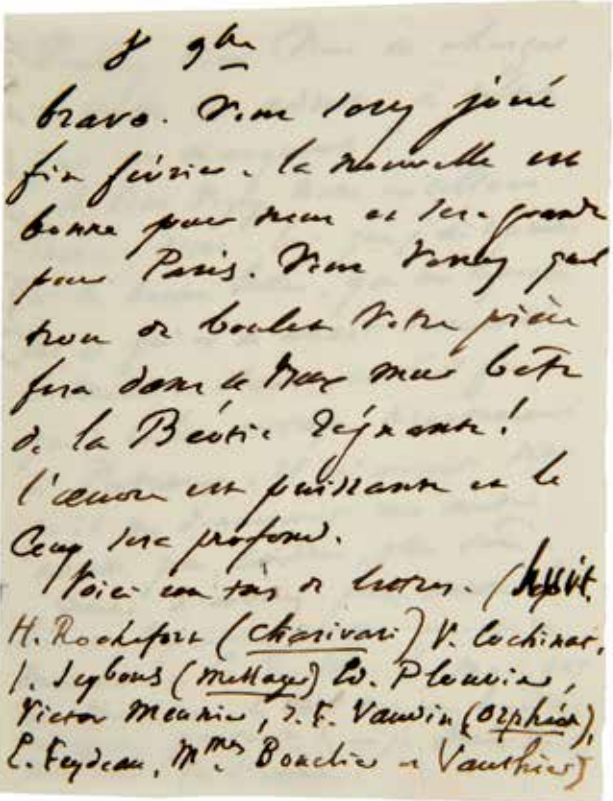 8 9bre
bravo. Vous serez joué
fin février. la nouvelle est
bonne pour nous et sera grande
pour Paris. Vous verrez quel
trou de boulet votre pièce
fera dans ce vieux mur bête
de la Béotie régnante !
l'œuvre est puissante et le
Coup sera profond.
Voici un tas de lettres. (
H. Rochefort (Charivari) V. Cochinat,
J. (Messager) Ed. Plouvier,
Victor Meunier, J. F. Vaudin (Orphéon),
E. Feydeau, Mmes Bouclier et Vauthier)